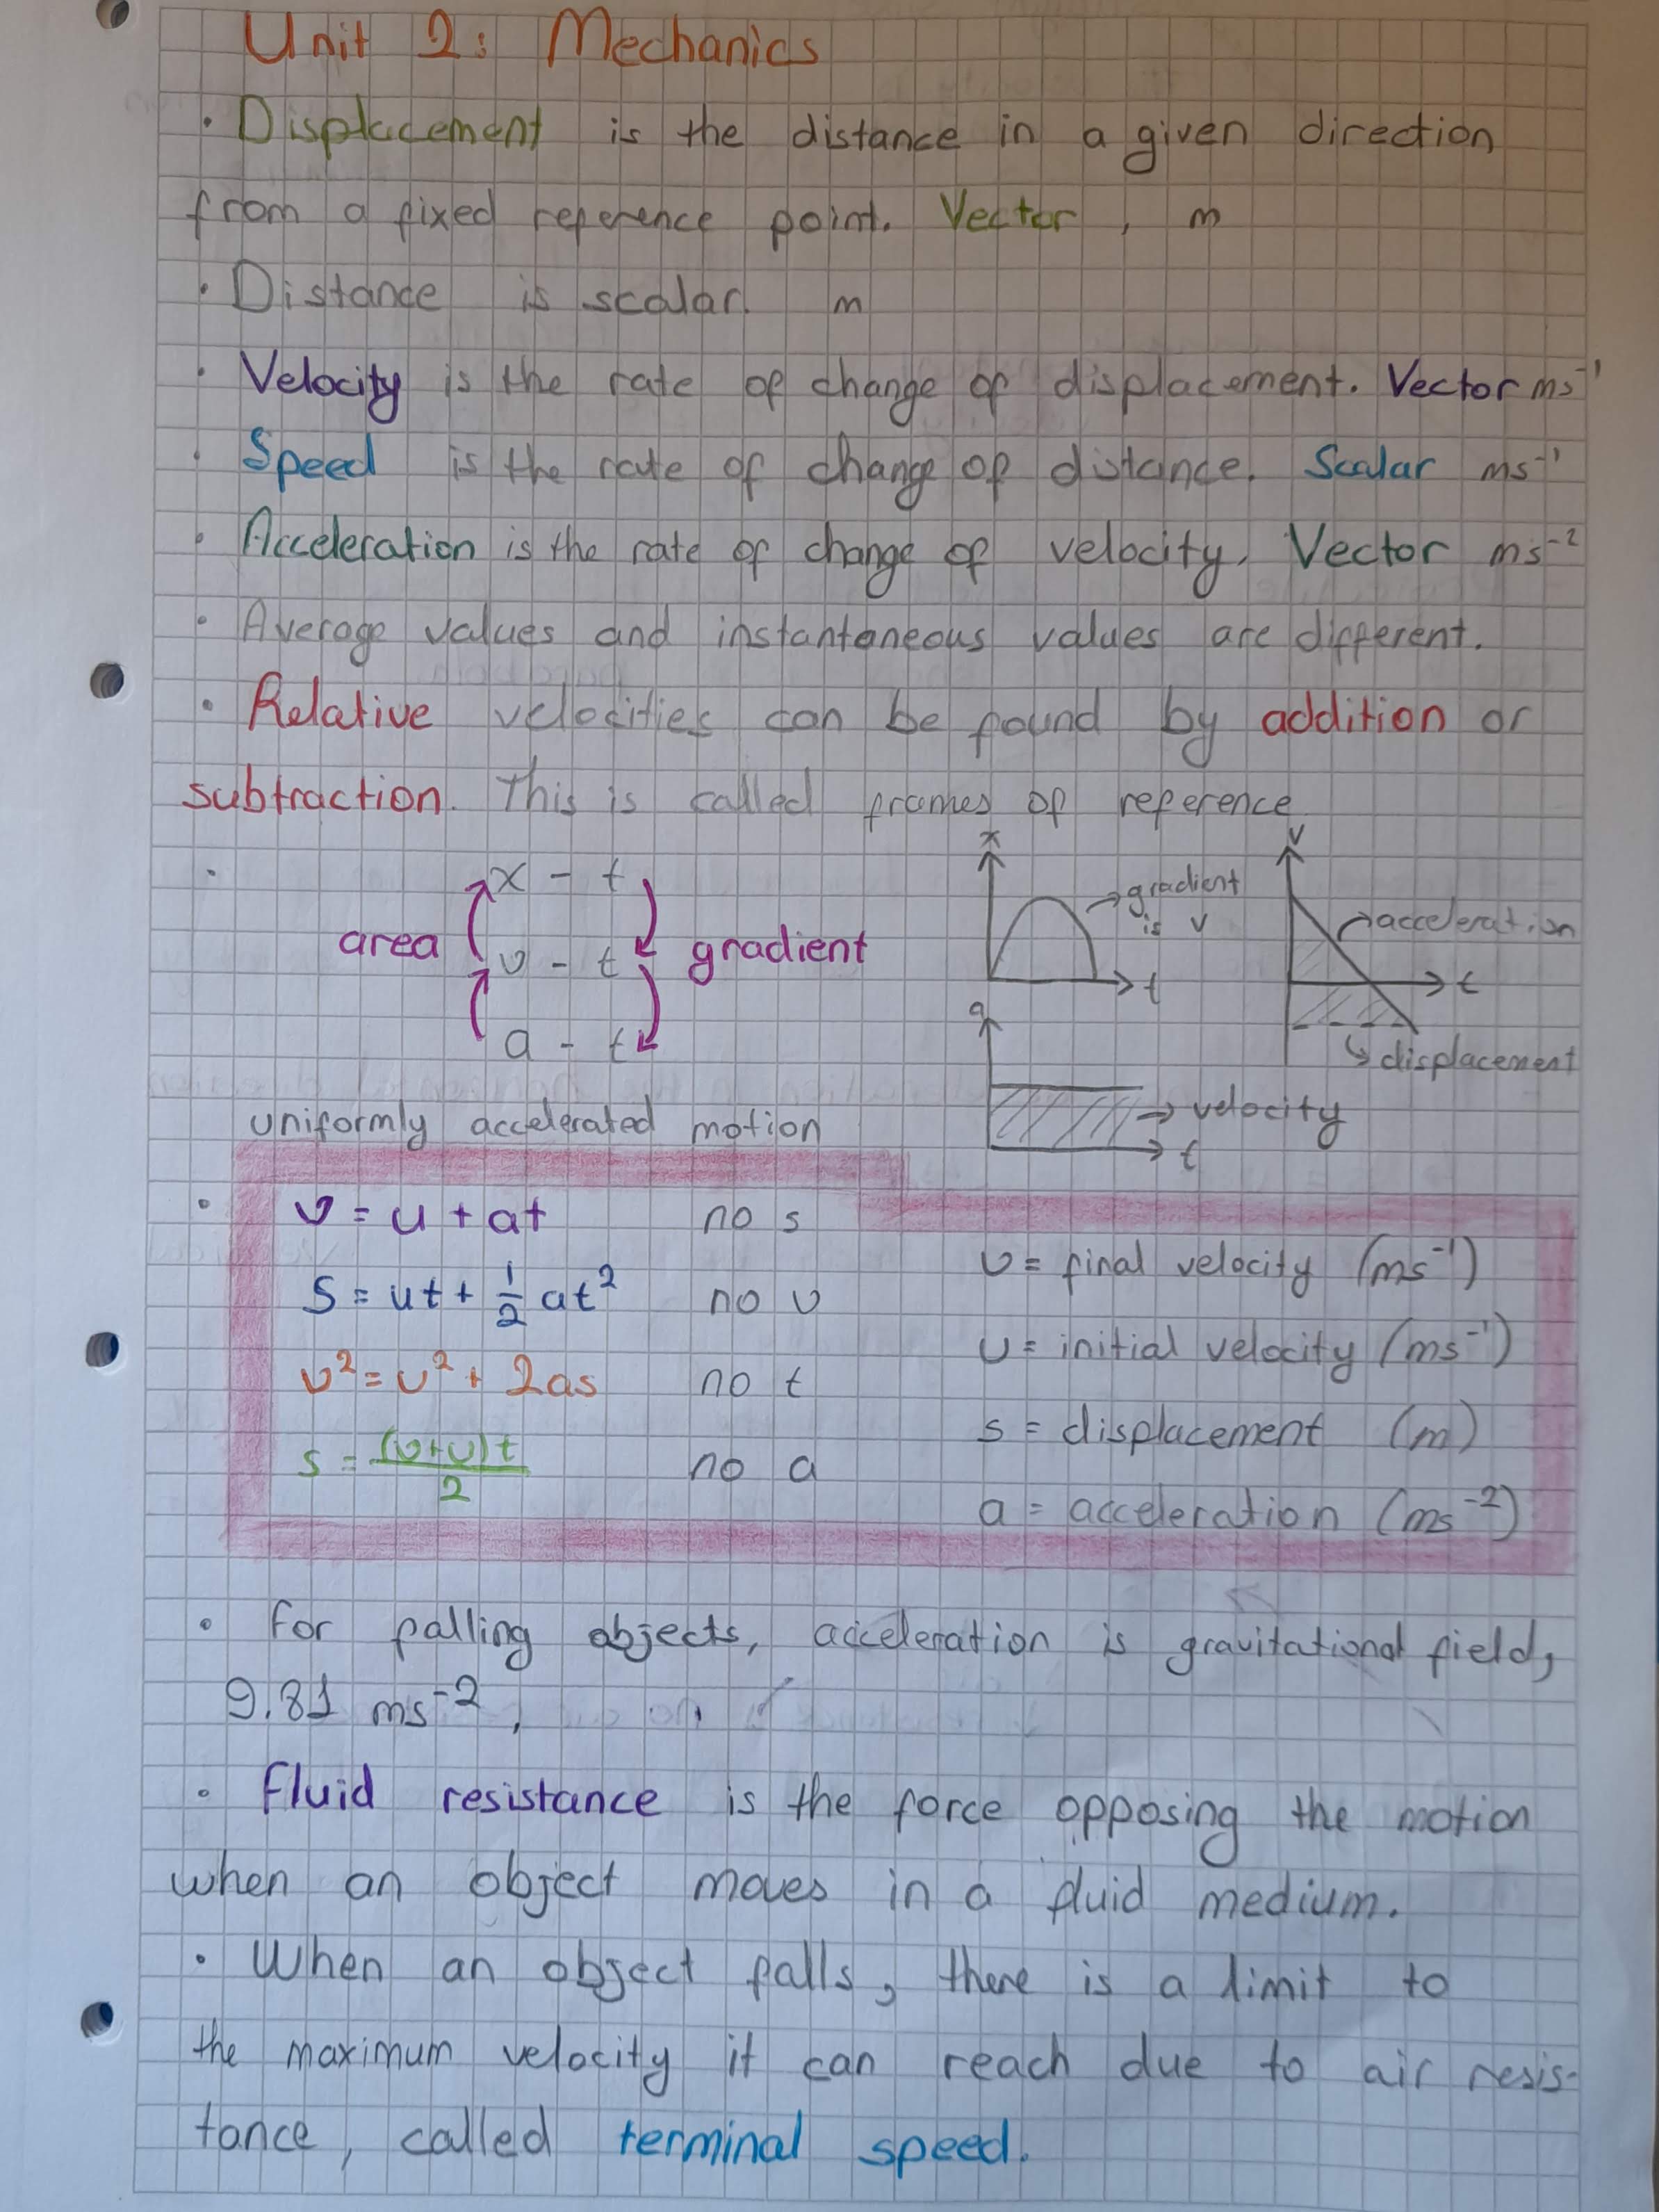 Unit 2: Mechanics
· Displacement is the distance in a given direction
from a fixed reference point. Vector, m
· Distance is scalar. m
· Velocity is the rate of change of displacement. Vector ms⁻¹
· Speed is the rate of change of distance. Scalar ms⁻¹
· Acceleration is the rate of change of velocity. Vector ms⁻²
· Average values and instantaneous values are different.
· Relative velocities can be found by addition or
subtraction. This is called frames of reference
· x - t
area v - t gradient
a - t
x
gradient
is v
t
v
acceleration
t
displacement
a
velocity
t
uniformly accelerated motion
· v = u + at no s
s = ut + 1/2 at² no v
v² = u² + 2as no t
s = (v+u)t/2 no a
v = final velocity (ms⁻¹)
u = initial velocity (ms⁻¹)
s = displacement (m)
a = acceleration (ms⁻²)
· For falling objects, acceleration is gravitational field,
9.81 ms⁻²,
· Fluid resistance is the force opposing the motion
when an object moves in a fluid medium.
· When an object falls, there is a limit to
the maximum velocity it can reach due to air resis-
tance, called terminal speed.